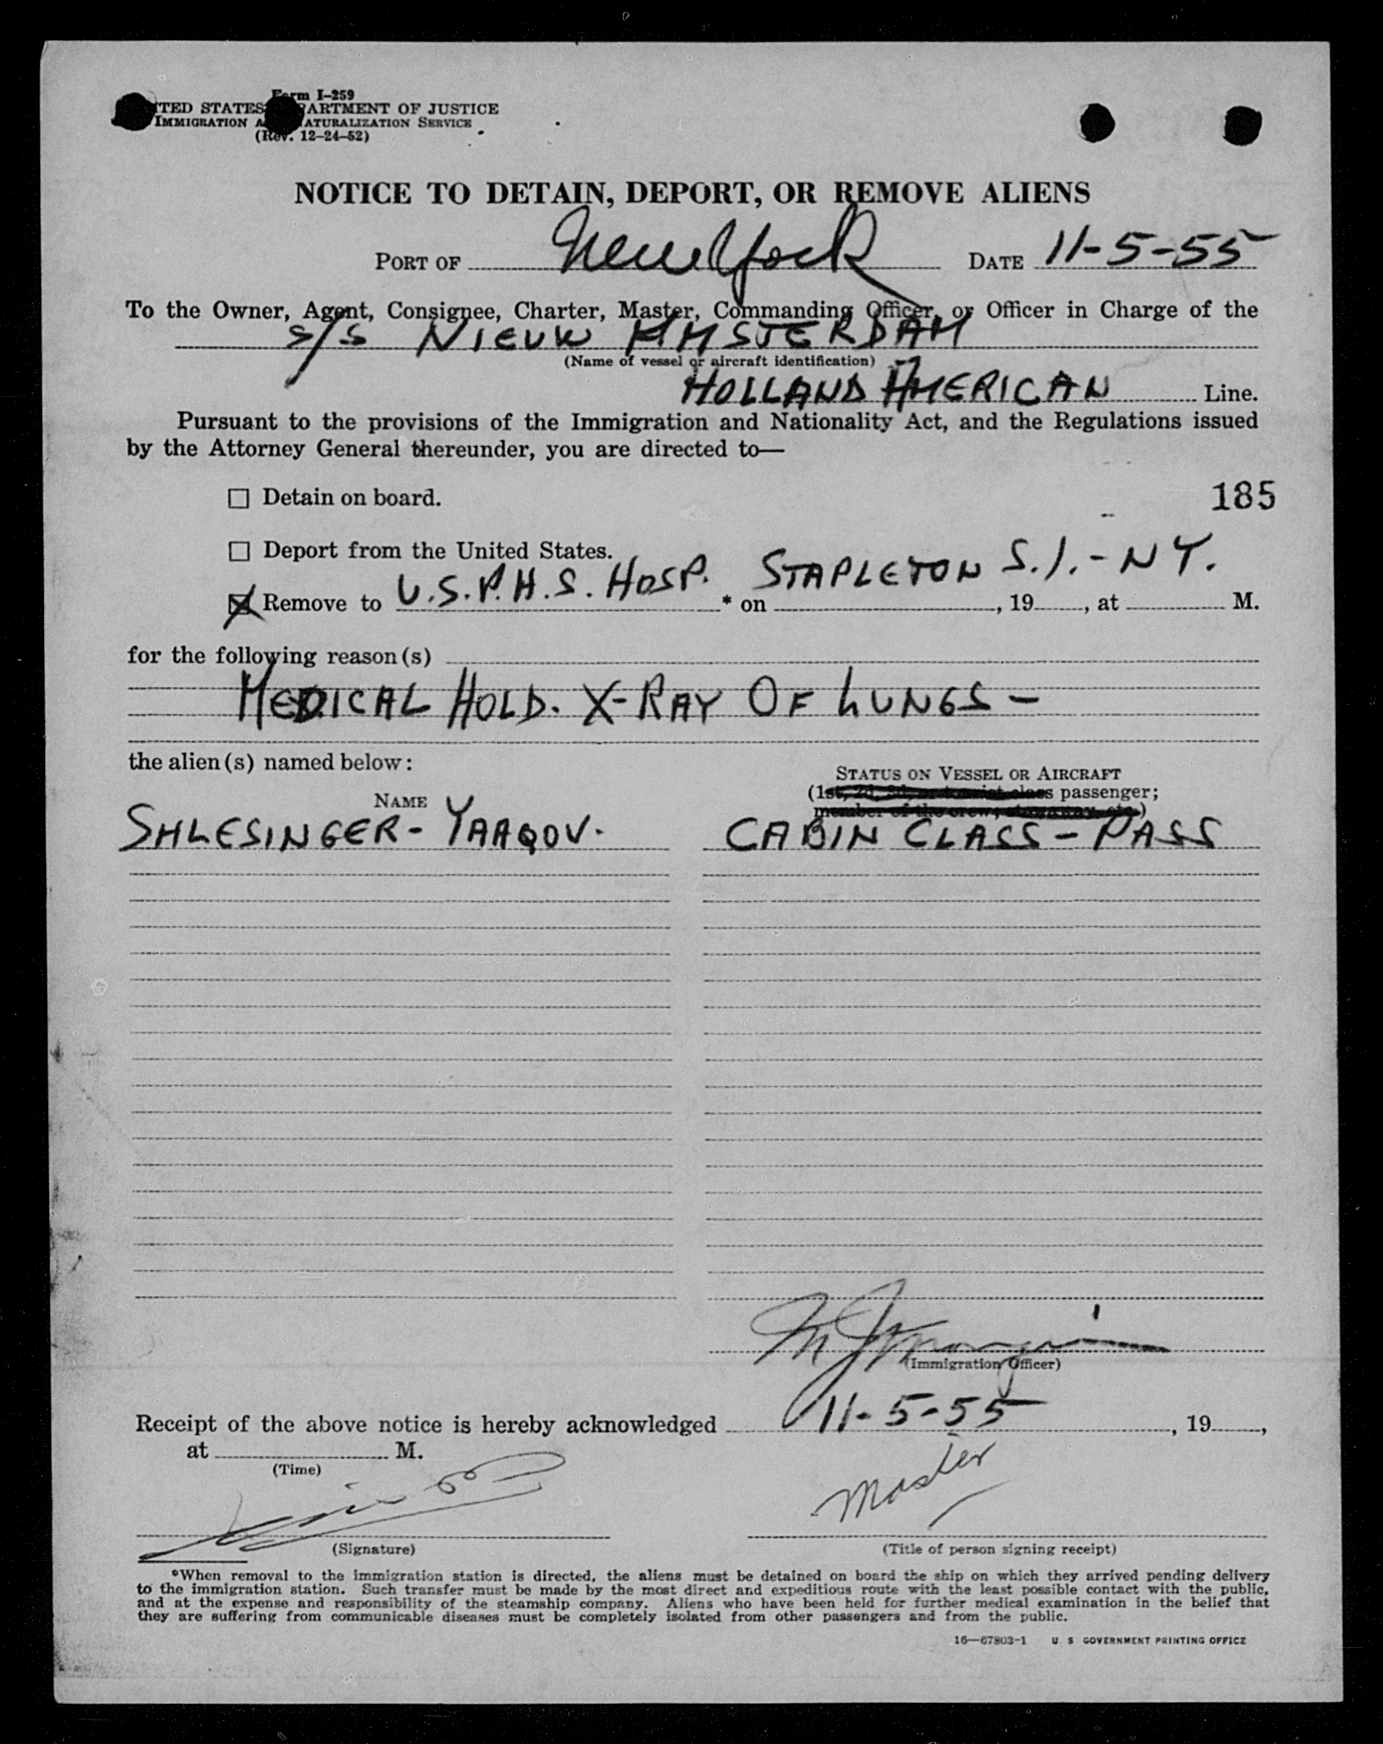 Form I-259
UNITED STATES DEPARTMENT OF JUSTICE
IMMIGRATION AND NATURALIZATION SERVICE
(Rev. 12-24-52)
NOTICE TO DETAIN, DEPORT, OR REMOVE ALIENS
PORT OF New York DATE 11-5-55
To the Owner, Agent, Consignee, Charter, Master, Commanding Officer, or Officer in Charge of the
S/S NIEUW AMSTERDAM
(Name of vessel or aircraft identification)
HOLLAND AMERICAN Line.
Pursuant to the provisions of the Immigration and Nationality Act, and the Regulations issued
by the Attorney General thereunder, you are directed to—
☐ Detain on board.
185
☐ Deport from the United States.
☒ Remove to U.S.P.H.S. HOSP. * on STAPLETON S.I. - NY. , 19 , at M.
for the following reason(s)
MEDICAL HOLD. X-RAY OF LUNGS -
the alien(s) named below:
STATUS ON VESSEL OR AIRCRAFT
NAME (1st, 2d, 3d, or tourist class passenger;
member of the crew, stowaway, etc.)
SHLESINGER - YAAQOV. CABIN CLASS - PASS
(Immigration Officer)
Receipt of the above notice is hereby acknowledged 11-5-55 , 19 ,
at M.
(Time)
Master
(Signature) (Title of person signing receipt)
*When removal to the immigration station is directed, the aliens must be detained on board the ship on which they arrived pending delivery
to the immigration station. Such transfer must be made by the most direct and expeditious route with the least possible contact with the public,
and at the expense and responsibility of the steamship company. Aliens who have been held for further medical examination in the belief that
they are suffering from communicable diseases must be completely isolated from other passengers and from the public.
16—67803-1 U. S. GOVERNMENT PRINTING OFFICE